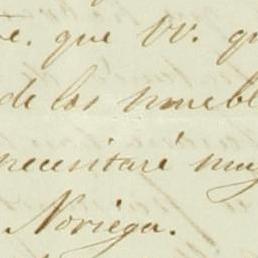 te. que VV. qu
de los muebl
necesitaré muy
Noriega.